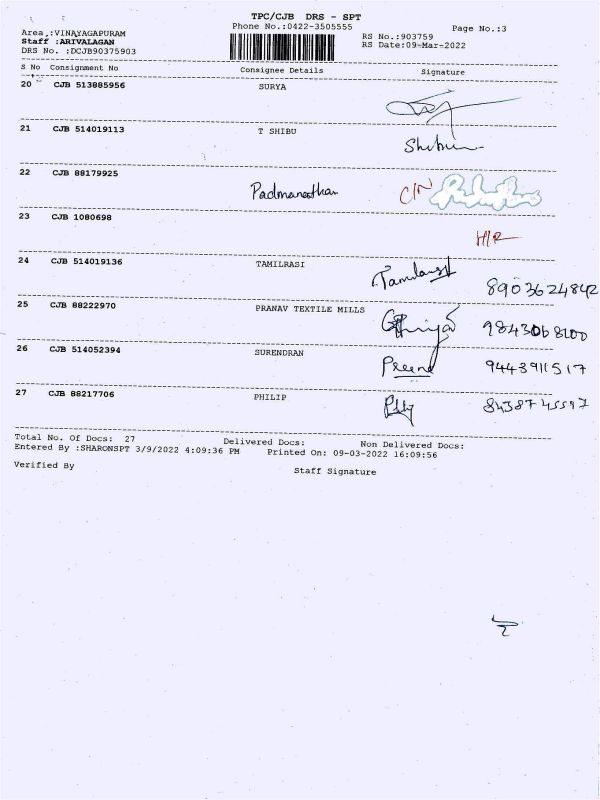 TPC/CJB DRS - SPT
Phone No.:0422-3505555 Page No.:3
Area :VINAYAGAPURAM RS No.:903759
Staff :ARIVALAGAN RS Date:09-Mar-2022
DRS No. :DCJB90375903
S No Consignment No Consignee Details Signature
20 CJB 513885956 SURYA
21 CJB 514019113 T SHIBU
22 CJB 88179925 Padmanathan C/N
23 CJB 1080698
H/R
24 CJB 514019136 TAMILRASI Tamilarasi 8903624842
25 CJB 88222970 PRANAV TEXTILE MILLS 9843068100
26 CJB 514052394 SURENDRAN 9443911517
27 CJB 88217706 PHILIP
Total No. Of Docs: 27 Delivered Docs: Non Delivered Docs:
Entered By :SHARONSPT 3/9/2022 4:09:36 PM Printed On: 09-03-2022 16:09:56
Verified By Staff Signature